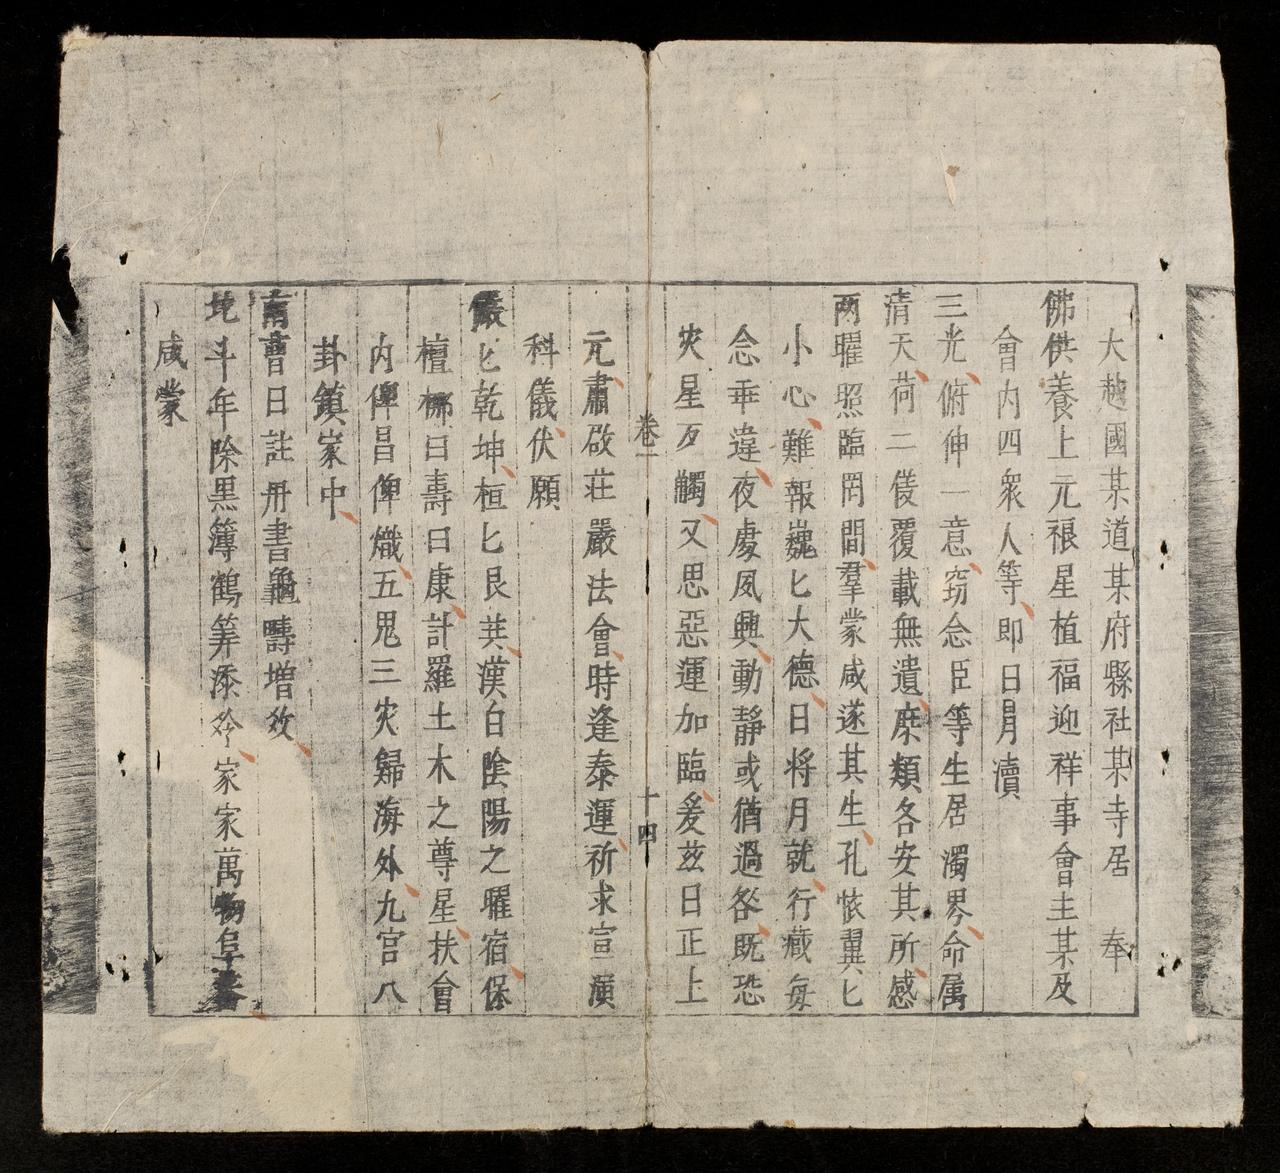 大越國某道某府縣社某寺居　奉
佛供養上元禳星植福迎祥事會主某及
會内四衆人等即日冐瀆
三光俯伸一意窃念臣等生居濁界命属
清天荷二儀覆載無遺庶類各安其所感
两曜照臨罔間羣蒙咸遂其生孔恢翼匕
小心難報巍匕大德日將月就行藏每
念乖違夜處夙興動静或猶過咎既恐
灾星歹觸又思惡運加臨爰茲日正上
卷一
十四
元肅啟莊嚴法會時逢泰運祈求宣演
科儀伏願
嚴匕乾坤桓匕艮巽漢白陰陽之曜宿保
檀梛曰壽曰康計羅土木之尊星扶會
内俾昌俾熾五鬼三灾歸海外九宫八
卦鎮家中
南曹日註冊書龜疇增效
北斗年除黒簿鶴筭添齡家家萬物阜蕃
咸蒙